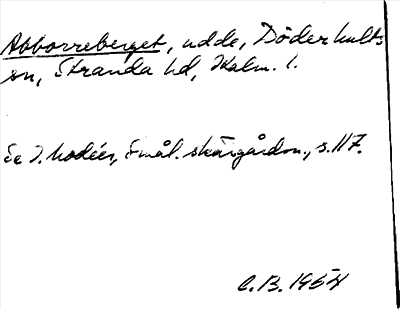 Abborreberget, udde, Döderhults
sn, Stranda hd, Kalm. l.
Se I. Modéer, Smål. skärgårdsn., s. 117.
C.B. 1964